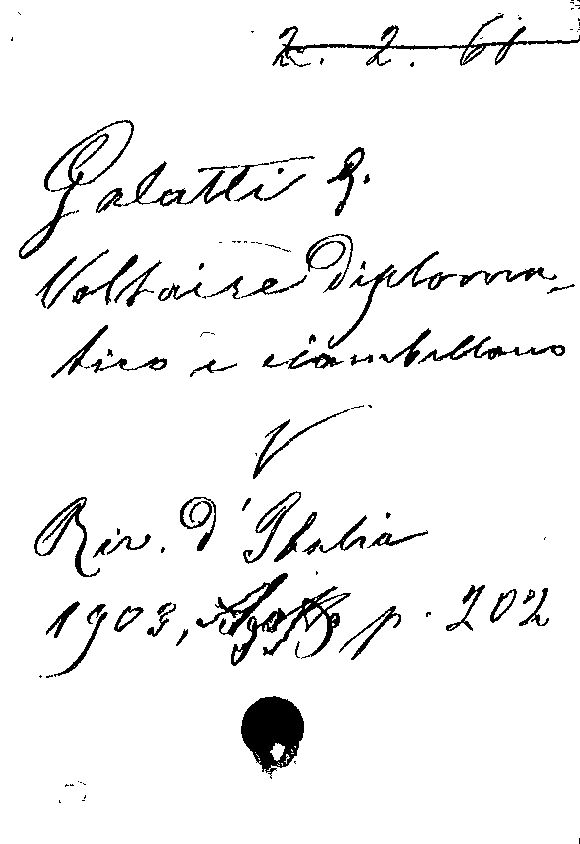 2. 2. 61
Galatti G.
Voltaire Diploma-
tico e ciambellano
V
Riv. d'Italia
1903, p. 202